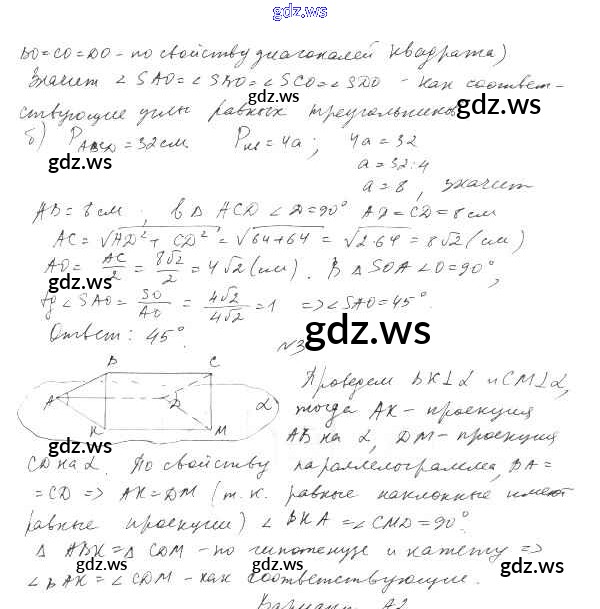 gdz.ws
BO=CO=DO - по свойству диагоналей квадрата)
Значит ∠SAO=∠SBO=∠SCO=∠SDO - как соответ-
gdz.ws
ствующие углы равных треугольников
gdz.ws
б) P_ABCD=32см P_кв=4a; 4a=32
gdz.ws
a=32:4
gdz.ws
a=8, значит
AB=8см; в △ACD ∠D=90° AD=CD=8см
AC=√AD²+CD²=√64+64=√2·64=8√2(см)
gdz.ws
AO=AC/2=8√2/2=4√2(см). В △SOA ∠O=90°,
tg∠SAO=SO/AO=4√2/4√2=1 =>∠SAO=45°.
gdz.ws
Ответ: 45°.
gdz.ws
№3
B C
A D α
K M
Проведем BK⊥α и CM⊥α,
тогда AK - проекция
AB на α, DM - проекция
CD на α. По свойству параллелограмма, BA=
gdz.ws
=CD => AK=DM (т.к. равные наклонные имеют
равные проекции) ∠BKA=∠CMD=90°.
gdz.ws
△ABK=△CDM - по гипотенузе и катету =>
gdz.ws
∠BAK=∠CDM - как соответствующие.
gdz.ws
Вариант А2